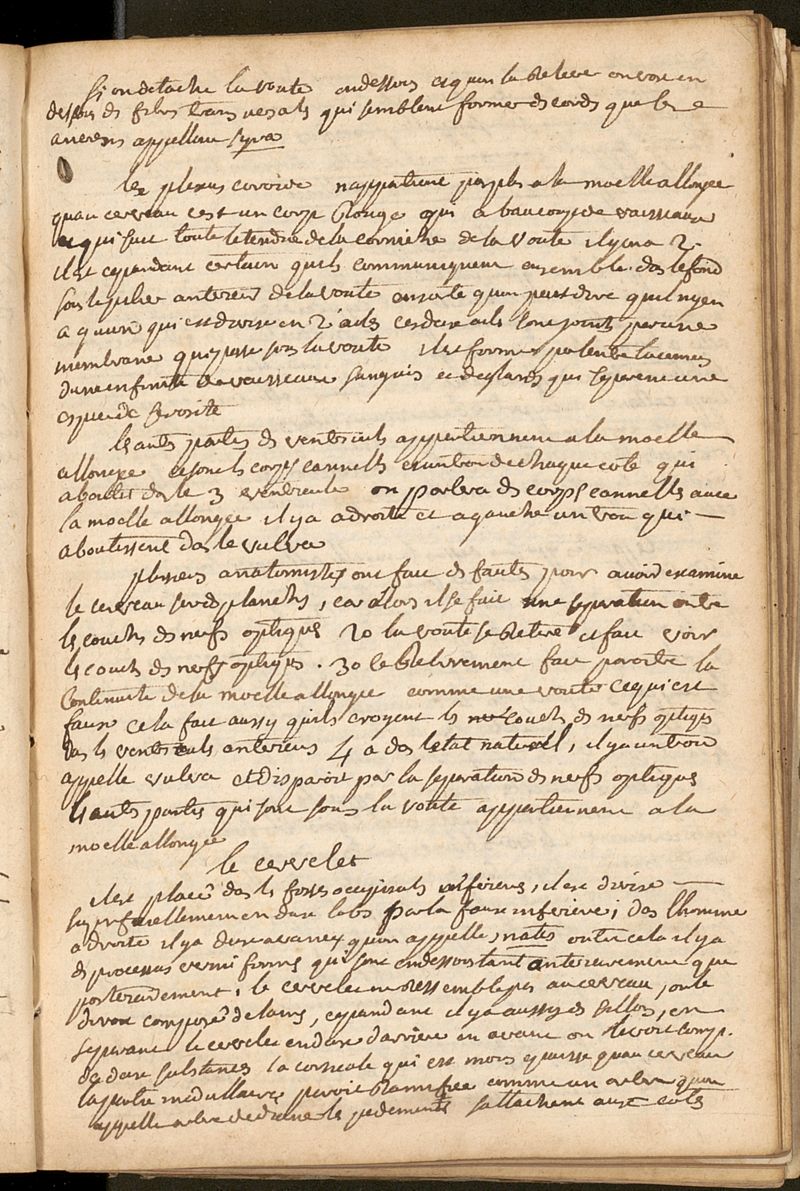 si on detache la voute en dessous et quon la releve on voit en
dessous des fibres transversales qui semblent former des cordes que les
anciens appellent lyra
les plexus coroide nappartient pas plus a la moelle allongee
quau cerveau cest un corps rouge qui a beaucoup de vaisseaux
et qui suit toute letendue de la corniche de la voute il y en a 2.
il est cependant certain quils communiquent ensemble dans le fond
sous le pilier anterieur de la voute ensorte quon peut dire quil ny en
a quun qui est divise en 2 ailes ces deux ails sont joints par une
membrane qui passe sous la voute il est forme par lentrelacement
dune infinite de vaisseaux sanguins et de glandes qui separent une
espece de serosite
les autres parties des ventricules appartiennent a la moelle
allongee et sont les corps cannelles et un trou de chaque cote qui
aboutit dans le 3 ventricule on parlera des corps cannelles avec
la moelle allongee il y a a droite et a gauche un trou qui
aboutissent dans le vulva
plusieurs anatomistes ont fait des fautes pour avoir examine
le cerveau sur des planches, car alors il se fait une separation entre
les couches des nerfs optiques 2o la voute se retire et fait voir
les couches des nerfs optiques. 3o le relevement fait paroitre la
continuite de la moelle allongee comme une voute ce qui est
faux cela fait aussy quils croyent les couches des nerfs optiques
dans les ventricules anterieurs 4 a dans letat naturel, il y a un trou
appelle vulva et disparoit par la separation des nerfs optiques
les autres parties qui sont sous la voute appartiennent a la
moelle allongee
le cervelet
il est place dans les fosses occipitales inferieures, il est divise
superficiellement en deux lobes par la faux inferieure; dans lhomme
a droite il y a deux avances quon appelle, nates outre cela il y a
des processus vermiformes qui sont en dessous tant anterieurement que
posterieurement; le cervelet ne ressemble pas au cerveau, on le
diroit composé de lames, cependant il y a aussy des sillons, en
separant le cervelet en deux darriere en avant on le voit comp.
de deux substances la corticale qui est moins epaisse quau cerveau
la partie medullaire paroit ramifiee comme un arbre quon
appelle arbre de diane les pedoncules sattachent aux cotes